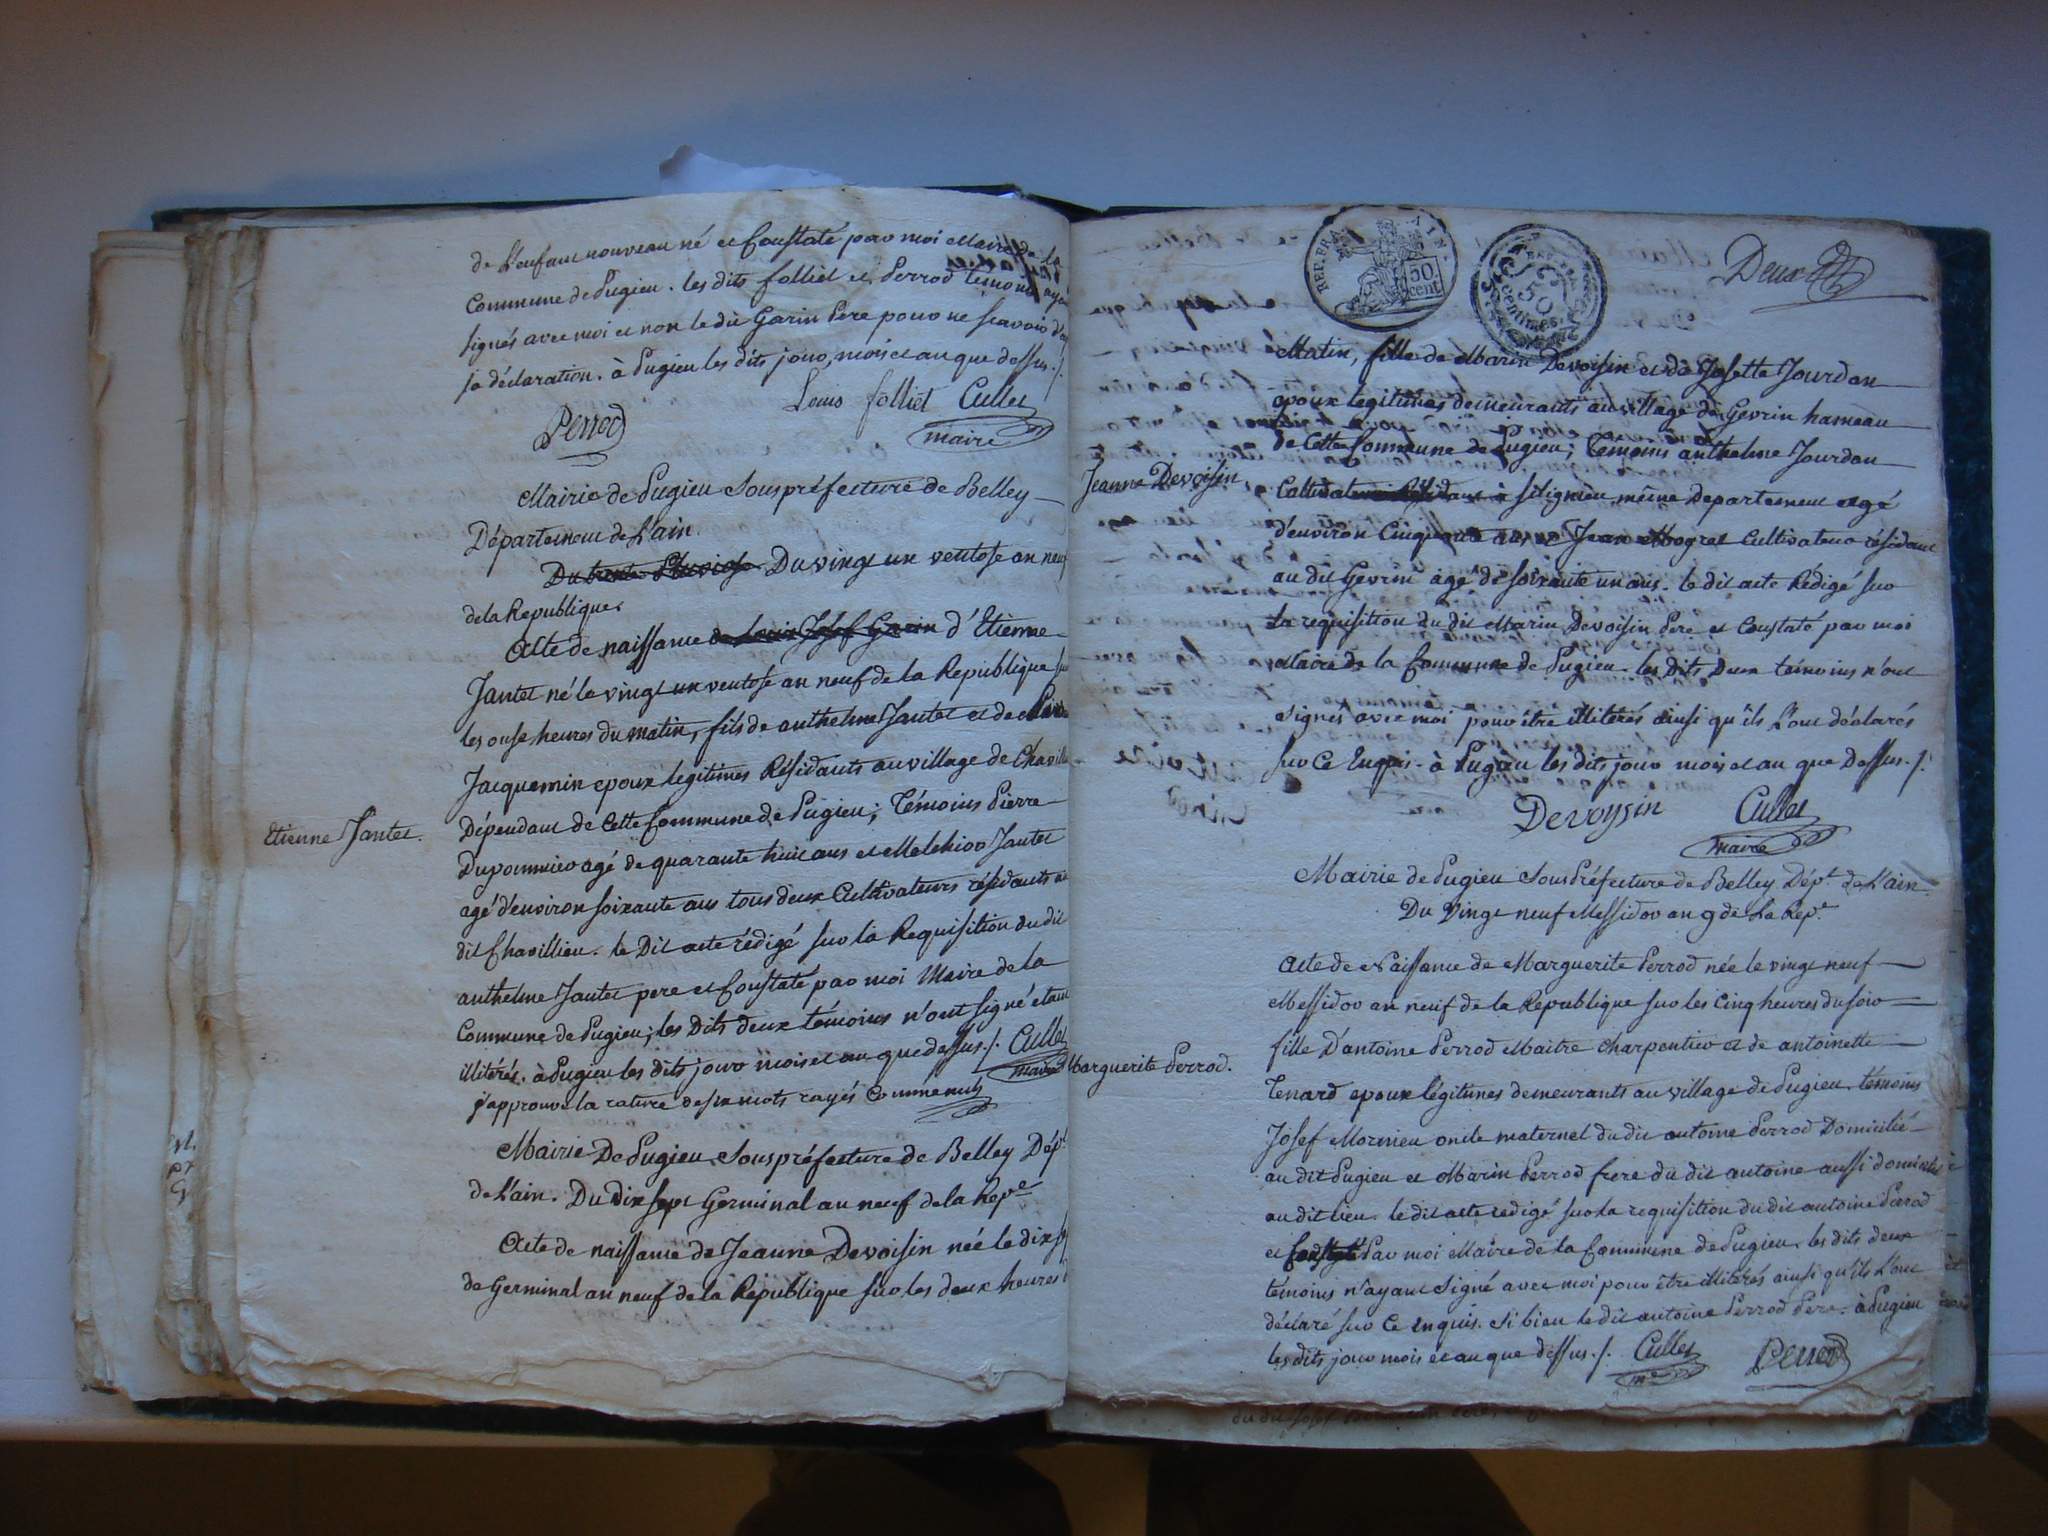 de L'enfant nouveau né et Constaté par moi Maire de la
Commune de Pugieu. les dits folliet et Perrod temoins ayant
signés avec moi et non le dit Garin Pere pour ne scavoir
sa déclaration. à Pugieu les dits jour, mois et an que dessus ./.
Louis folliet Cullet
Perrod maire
Mairie de Pugieu Souspréfecture de Belley
Département de L'ain.
Du trente Pluviose Du vingt un ventose an neuf
de la Republique.
Acte de naissance de Louis Josef Garin d'Etienne
Jantet né le vingt un ventose an neuf de la Republique sur
les onse heures du matin, fils de anthelme Jantet et de
Jacquemin epoux legitimes Résidants au village de Chavillieu
Etienne Jantet.
Dépendant de Cette Commune de Pugieu; Témoins Pierre
Duponnier agé de quarante huit ans et Melchior Jantet
agé d'environ soixante ans tous deux Cultivateurs résidants au
dit Chavillieu. le Dit acte rédigé sur la Requisition du dit
anthelme Jantet pere et Constaté par moi Maire de la
Commune de Pugieu; les Dits deux témoins n'ont signé etant
illitérés. à Pugieu les dits jour mois et an que dessus ./. Cullet
maire
j'approuve la rature de six mots rayés Comme nuls
Mairie De Pugieu Souspréfecture de Belley Dépt
de L'ain. Du Dix sept Germinal an neuf de la Repe
Acte de naissance de Jeanne Devoisin née le dix sept
de Germinal an neuf de la Republique sur les deux heures du
REP. FRA. 50 cent
50 centimes
Deux
Matin, fille de Marin Devoisin et de Josette Jourdan
epoux legitimes demeurants au village de Gevrin hameau
de Cette Commune de Pugieu; Témoins anthelme Jourdan
Jeanne Devoisin
Cultivateur Résidant à Silignieu même Departement agé
d'environ Cinquante ans et Jean Mogret Cultivateur résidant
au dit Gevrin agé de soixante un ans. le dit acte Rédigé sur
La requisition du dit Marin Devoisin Pere et Constaté par moi
Maire de la Commune de Pugieu. les dits Deux témoins n'ont
signés avec moi pour être illitérés ainsi qu'ils L'ont déclarés
sur Ce Enquis. à Pugieu les dits jour mois et an que Dessus ./.
Devoysin Cullet
maire
Mairie de Pugieu SousPréfecture de Belley Dépt. de L'ain
Du Vingt neuf Messidor an 9 de La Repe.
Acte de Naissance de Marguerite Perrod née le vingt neuf
Messidor an neuf de la Republique sur les Cinq heures du soir
fille D'antoine Perrod Maitre Charpentier et de antoinette
Marguerite Perrod.
Tenard epoux légitimes demeurants au village de Pugieu. témoins
Josef Mornieu oncle maternel du dit antoine Perrod Domicilié
au dit Pugieu et Marin Perrod frere du dit antoine aussi domicilié
au dit lieu. le dit acte redigé sur la requisition du dit antoine Perrod
et Constaté Par moi Maire de la Commune de Pugieu. les dits deux
témoins n'ayant Signé avec moi pour être illitérés ainsi qu'ils L'ont
déclaré sur Ce enquis. Si bien le dit antoine Perrod Pere. à Pugieu
les dits jour mois et an que dessus ./. Cullet Perrod
me